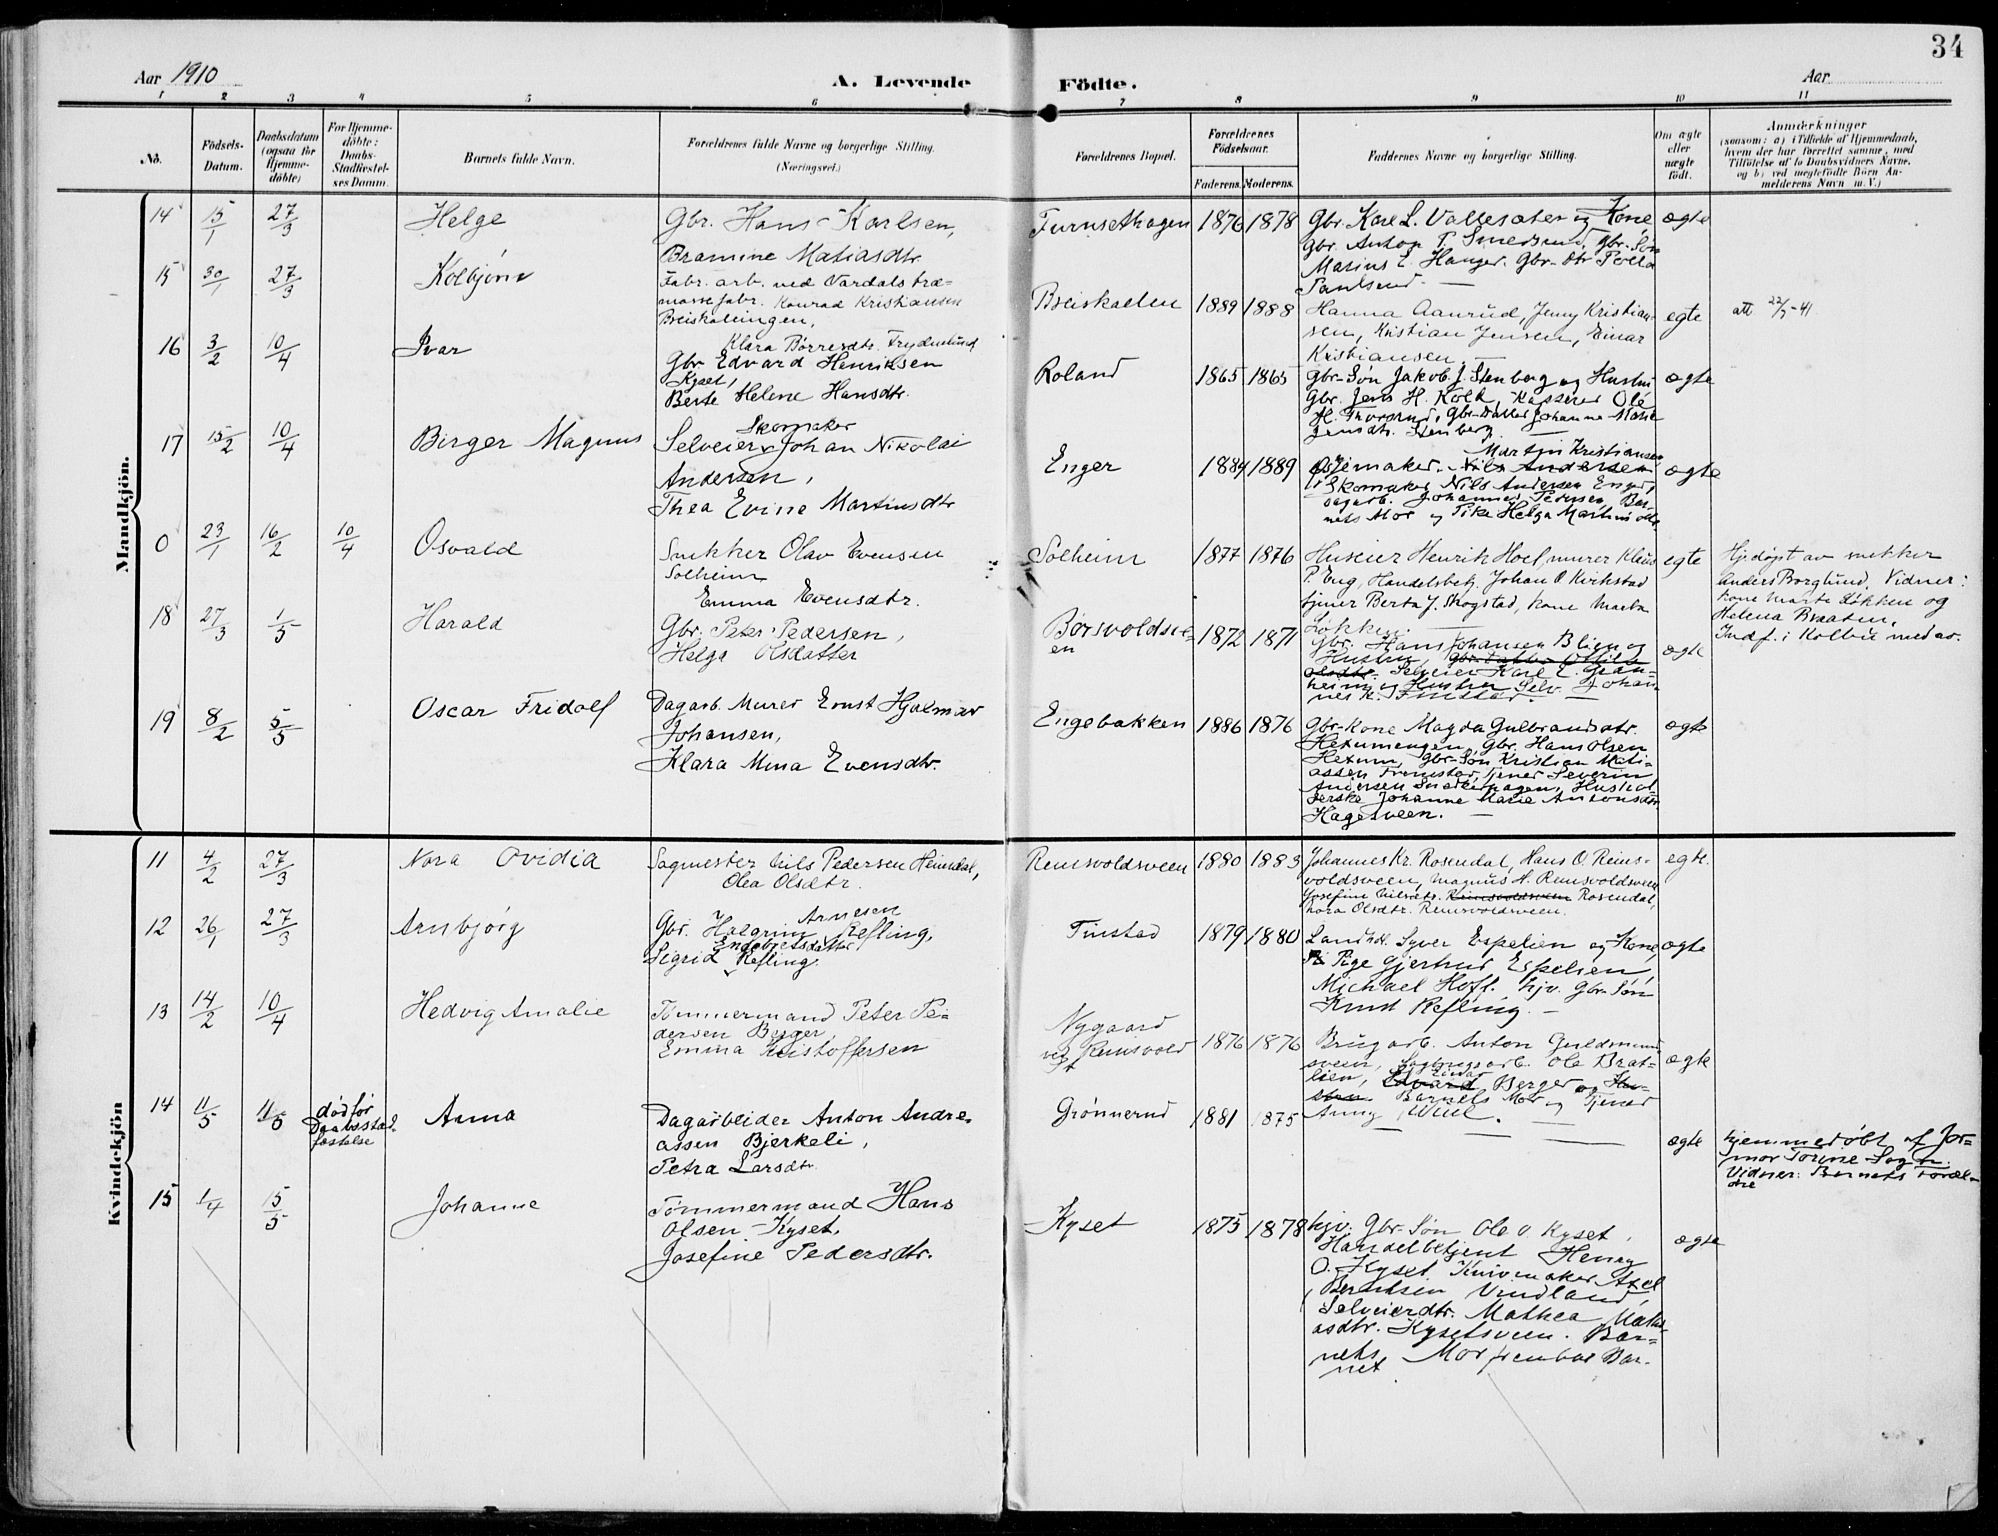 34
Aar 1910
A. Levende
Födte.
Aar
1 2 3 4 5 6 7 8 9 10 11
No.
Födsels-
Datum.
Daabsdatum
(ogsaa for
Hjemme-
döbte)
For Hjemme-
döbte:
Daabs-
Stadfæstel-
ses Datum.
Barnets fulde Navn.
Forældrenes fulde Navne og borgerlige Stilling.
(Næringsvei.)
Forældrenes Bopæl.
Forældrenes
Födselsaar.
Faderens. Moderens.
Faddernes Navne og borgerlige Stilling.
Om ægte
eller
uægte
födt.
Anmærkninger
(saasom: a) i Tilfælde af Hjemmedaab,
hvem der har forrettet samme, med
Tilföielse af to Daabsvidners Navne,
og b) ved uægtefödte Börn An-
melderens Navn m. V.)
Mandkjön.
14 15/1 27/3 Helge
Gbr. Hans Karlsen,
Bramine Matiasdtr.
Furnsethagen 1876 1878
Gbr. Karl L. Vallesæter og Kone
Gbr. Anton P. Smedsrud, Gbr. Søn
Marius E. Hanger. Gbr. dtr
Paulsrud. —
ægte
15 30/1 27/3 Kolbjørn
Fabr. arb. ved Vardals træ-
massefabr. Konrad Kristiansen
Breiskallingen,
Klara Børresdtr. Frydenlund
Breiskallen 1889 1888
Hanna Aanrud, Jenny Kristian-
sen, Kristian Jensen, Einar
Kristiansen. —
egte
att 22/5-41
16 3/2 10/4 Ivar
Gbr Edvard Henriksen
Kyset,
Berte Helene Hansdtr.
Roland 1865 1865
Gbr-Søn Jakob J. Stenberg og Hustru
Gbr. Jens H. Kolk, Kasserer Ole
H. Thorsrud, Gbr-Datter Johanne Marie
Jensdtr. Stenberg —
ægte
17 15/2 10/4 Birger Magnus
Skomaker
Selveier Johan Nikolai
Andersen,
Thea Evine Martinsdtr
Enger 1884 1889
Martin Kristiansen
Nils Andersen
Skomaker Nils Andersen Enger,
dagarb. Johannes Pedersen, Bar-
nets Mor og Pike Helga Martinsdtr.
ægte
0 23/1 16/2 10/4 Osvald
Snekker Olav Evensen
Solheim
Emma Evensdtr.
Solheim 1877 1876
Huseier Henrik Hoel, murer Klaus
P. Eng, Handelsbetj. Johan O Kirkstad
tjener Berta J. Skogstad, kone Marta
Løkken. —
egte
Hjdøpt av snekker
Anders Borglund, Vidner:
kone Marte Løkken og
Helena Braaten,
Indf. i Kolbu med
18 27/3 1/5 Harald
Gbr. Peter Pedersen,
Helga Olsdatter
Børsvoldsei-
en
1872 1871
Gbr. Hans Johansen Blien og
Hustru, Gbr. Datter Otilie
Olsdtr. Selveier Karl E. Gran-
heim og Hustru Selv. Johan-
nes K. Finstad. —
ægte
19 8/2 5/5 Oscar Fridolf
Dagarb. Murer Ernst Hjalmar
Johansen,
Klara Mina Evensdtr.
Engebakken 1886 1876
Gbr-Kone Magda Gulbrandsdtr.
Hexumengen, Gbr. Hans Olsen
Hexum, Gbr-Søn Kristian Mati-
assen Finnstad, Tjener Severin
Andersen Smedeshagen, Hushol-
derske Johanne Marie Antonsdtr
Hagesveen. —
ægte
Kvindekjön
11 4/2 27/3 Nora Ovidia
Sagmester Nils Pedersen Heimdal,
Olea Olsdtr.
Reinsvoldsveen 1880 1883
Johannes Kr. Rosendal, Hans O. Reins-
voldsveen, Magnus H. Reinsvoldsveen
Josefine Nilsdtr. Reinsvoldsveen Rosendal,
Nora Olsdtr. Reinsvoldsveen.
egte.
12 26/1 27/3 Arnbjørg
Arnesen
Gbr. Halgrim Refling,
Engebretsdatter
Sigrid Refling.
Finstad 1879 1880
Landhdl. Syver Espelien og Kone,
Pige Gjertrud Espelien,
Michael Hoff. hjv. Gbr. Søn
Knud Refling. —
ægte
13 14/2 10/4 Hedvig Amalie
Tømmermand Peter Pe-
dersen Berger,
Emma Kristoffersen
Nygaard
ved Reinsvold
St
1876 1876
Brugarb. Anton Guldsmeds-
sveen, Sagbrugsarb. Ole Brat-
lien, Edvard Einar Berger og Hu-
stru Barnets Mor og Tjener
Anna Wiel. —
ægte
14 11/5 11/5 død før
Daabsstad-
fæstelse
Anna
Dagarbeider Anton Andre-
assen Bjerkeli,
Petra Larsdtr.
Grønnerud 1881 1875
— — —
ægte
hjemmedøbt af Jor-
mor Torine Sogn.
Vidner: Barnets Foræl-
dre
15 1/4 15/5 Johanne
Tømmermand Hans
Olsen Kyset,
Josefine Pedersdtr.
Kyset 1875 1878
hjv. Gbr-Søn Ole O. Kyset,
Handelbetjent Henry
O. Kyset. Knivmaker Axel
Berntsen Vindland,
Selveierdtr. Mathea Mathi-
asdtr. Kysetsveen. Bar-
nets Mor frembar Bar-
net
ægte